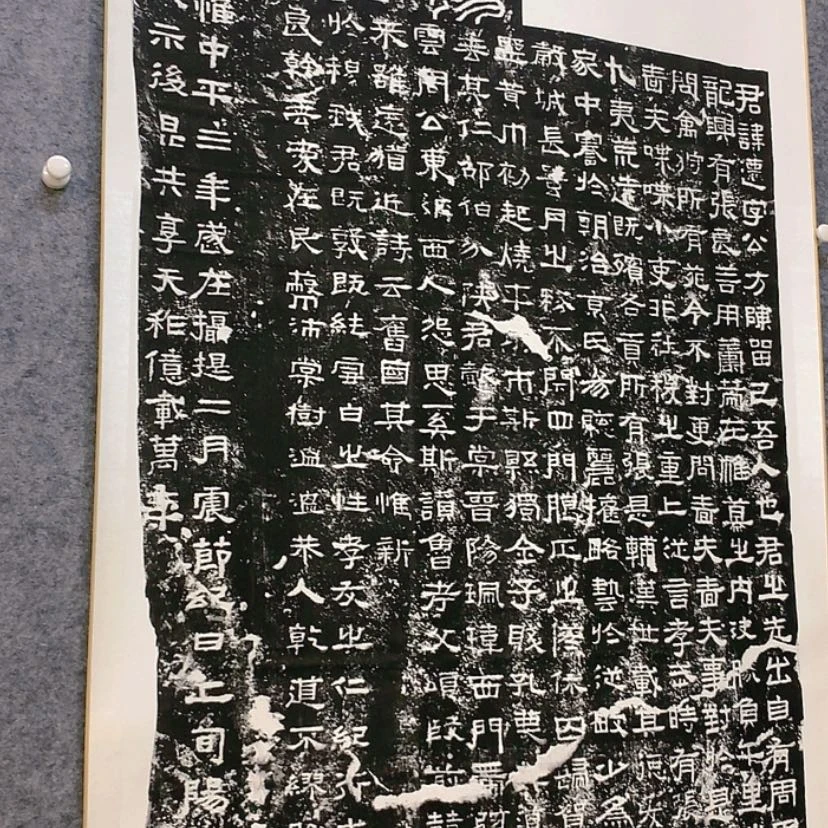 君諱遷字公方陳留己吾人也君之先出自有周
龍興有張良善用籌策在帷幕之內決勝負千里
問禽狩所有苑令不對更問嗇夫嗇夫事對於是
嗇夫喋喋小吏非社稷之重上從言孝武時有張
九夷荒遠既殯各貢所有張是輔漢世載其德爰
家中謇於朝治京氏易聰麗權略藝於從畋少為
穀城長蠶月之務不閉四門臘正之祭休囚歸賀
黃巾初起燒平城市斯縣獨全子賤孔蔑其道
善其仁邵伯分陝君懿于棠晉陽珮瑋西門帶
雲周公東征西人怨思奚斯讚魯考父頌殷前喆
來雖遠猶近詩云舊國其命惟新
於穆我君既敦既純雪白之性孝友之仁紀行求
良幹垂愛在民蔽沛棠樹溫溫恭人乾道不繆
惟中平三年歲在攝提二月震節紀日上旬陽
示後昆共享天祚億載萬年